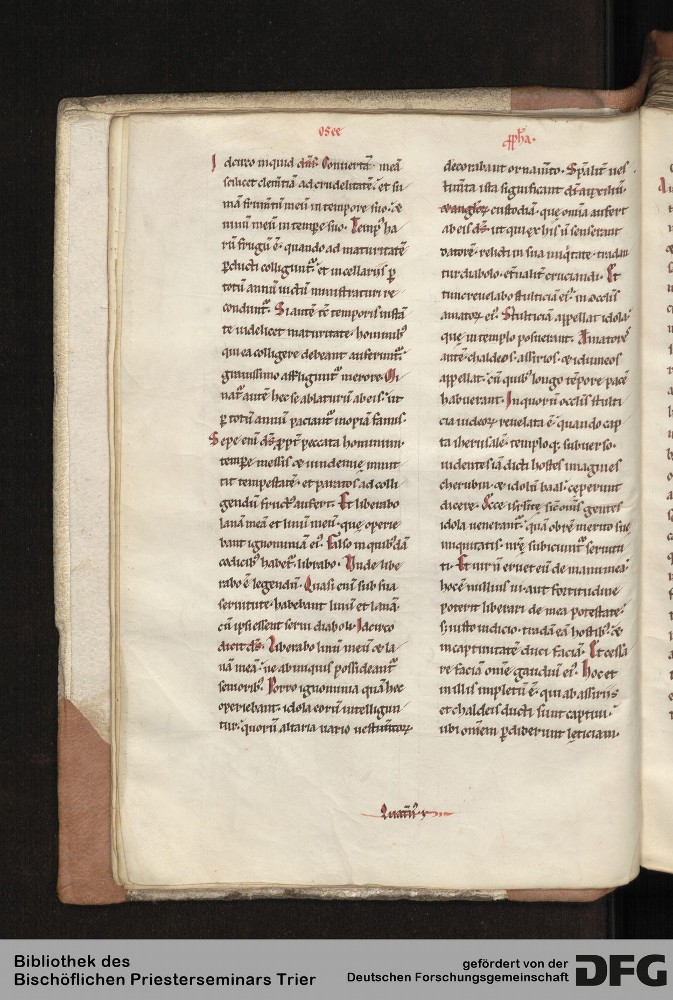 osee
ꝓph̄a.
Idcirco inquid dn̄s. Conuertā meā
scilicet clem̄tiā ad crudelitatē. et su
mā frum̄tū meū in tempore suo. &
uinū meū in tempe suo. Tempꝰ ha
rū frugū ē. quando ad maturitatē
ꝑducti colligunt᷑. et in cellariis ꝑ
totū annū uictū ministraturi re
condunt᷑. Si autē tē temporis instā
te uidelicet maturitate. hominibꝰ
qui ea colligere debeant auferunt᷑.
grauissimo affligunt᷑ merore. Mi
nat᷑ autē hec se ablaturū ab eis. ut
ꝑ totū annū paciant᷑ inopiā famis.
Sepe enī ds̄ ꝓpt̄ peccata hominum
tempe messis & uindemię inmit
tit tempestatē. et paratos ad colli
gendū fructꝰ aufert. Et liberabo
lanā meā et linū meū. que operie
bant ignominiā eiꝰ. Falso in quibꝰdā
codicibꝰ habet᷑. librabo. Unde libe
rabo ē legendū. Quasi enī sub sua
seruitute habebant linū et lanā.
cū ipsi essent serui diaboli. Idcirco
dicit ds̄. Liberabo linū meū & la
nā meā. ne ab iniquis possideant᷑
senioribꝰ. Porro ignominia quā hec
operiebant. idola eorū intelligun
tur. quorū altaria uario uestim̄toꝝ
decorabant ornam̄to. Sp̄alit̄ ues
tim̄ta ista significant dī auxiliū
& angloꝝ custodiā. que omīa aufert
ab eis ds̄. ut qui ex his n̄ senserant
datorē. relicti in sua iniq̇tate. tradan
tur diabolo. et̄nalit̄ cruciandi. Et
tunc reuelabo stulticiā eiꝰ. in oculis
amatoꝝ eiꝰ. Stulticiā appellat idola
que in templo posuerant. Amatores
autē chaldeos. assirios. & idumeos
appellat. cū quibꝰ longo tēpore pacē
habuerant. In quorū oculis stulti
cia iudeoꝝ reuelata ē. quando cap
ta iherusalē. temploq; subuerso.
uidentes iā dicti hostes imagines
cherubin. & idolū baal. ceperunt
dicere. Ecce isrl̄itę sic om̄s gentes
idola uenerant᷑. quā obrē merito suę
iniquitatis. nrę subiciunt᷑ seruitu
ti. Et uir n̄ eruet eū de manu mea.
hoc ē nullius uir aut fortitudine
poterit liberari de mea potestate.
S; iusto iudicio. tradā eā hostibꝰ. &
in captiuitatē duci faciā. Et cessa
re faciā om̄e gaudiū eiꝰ. Hoc et
in illis impletū ē. qui ab assiriis
et chaldeis ducti sunt captiui.
ubi om̄em ꝑdiderunt lęticiam.
Bibliothek des
Bischöflichen Priesterseminars Trier
gefördert von der
Deutschen Forschungsgemeinschaft
DFG